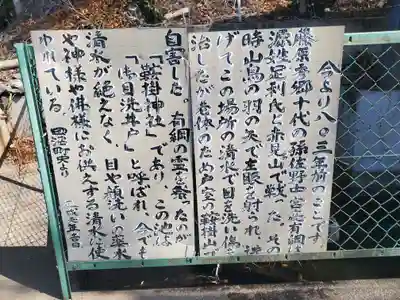 今より八〇三年前のことです
藤原秀郷十代の孫佐野士宮逸有綱は
源姓足利氏と赤見山で戦い、その
時山鳥の羽の矢で左眼を射られ、逃
げてこの場所の清水で目を洗い傷を
治したが多勢のため室の鞍掛山で
自害した。有綱の霊を祭ったのが
「鞍掛神社」であり、この池は
「御目洗井戸」と呼ばれ、今でも
清水が絶えなく、目や顔洗いの薬水
や神様や佛様にお供えする清水に使
われている。